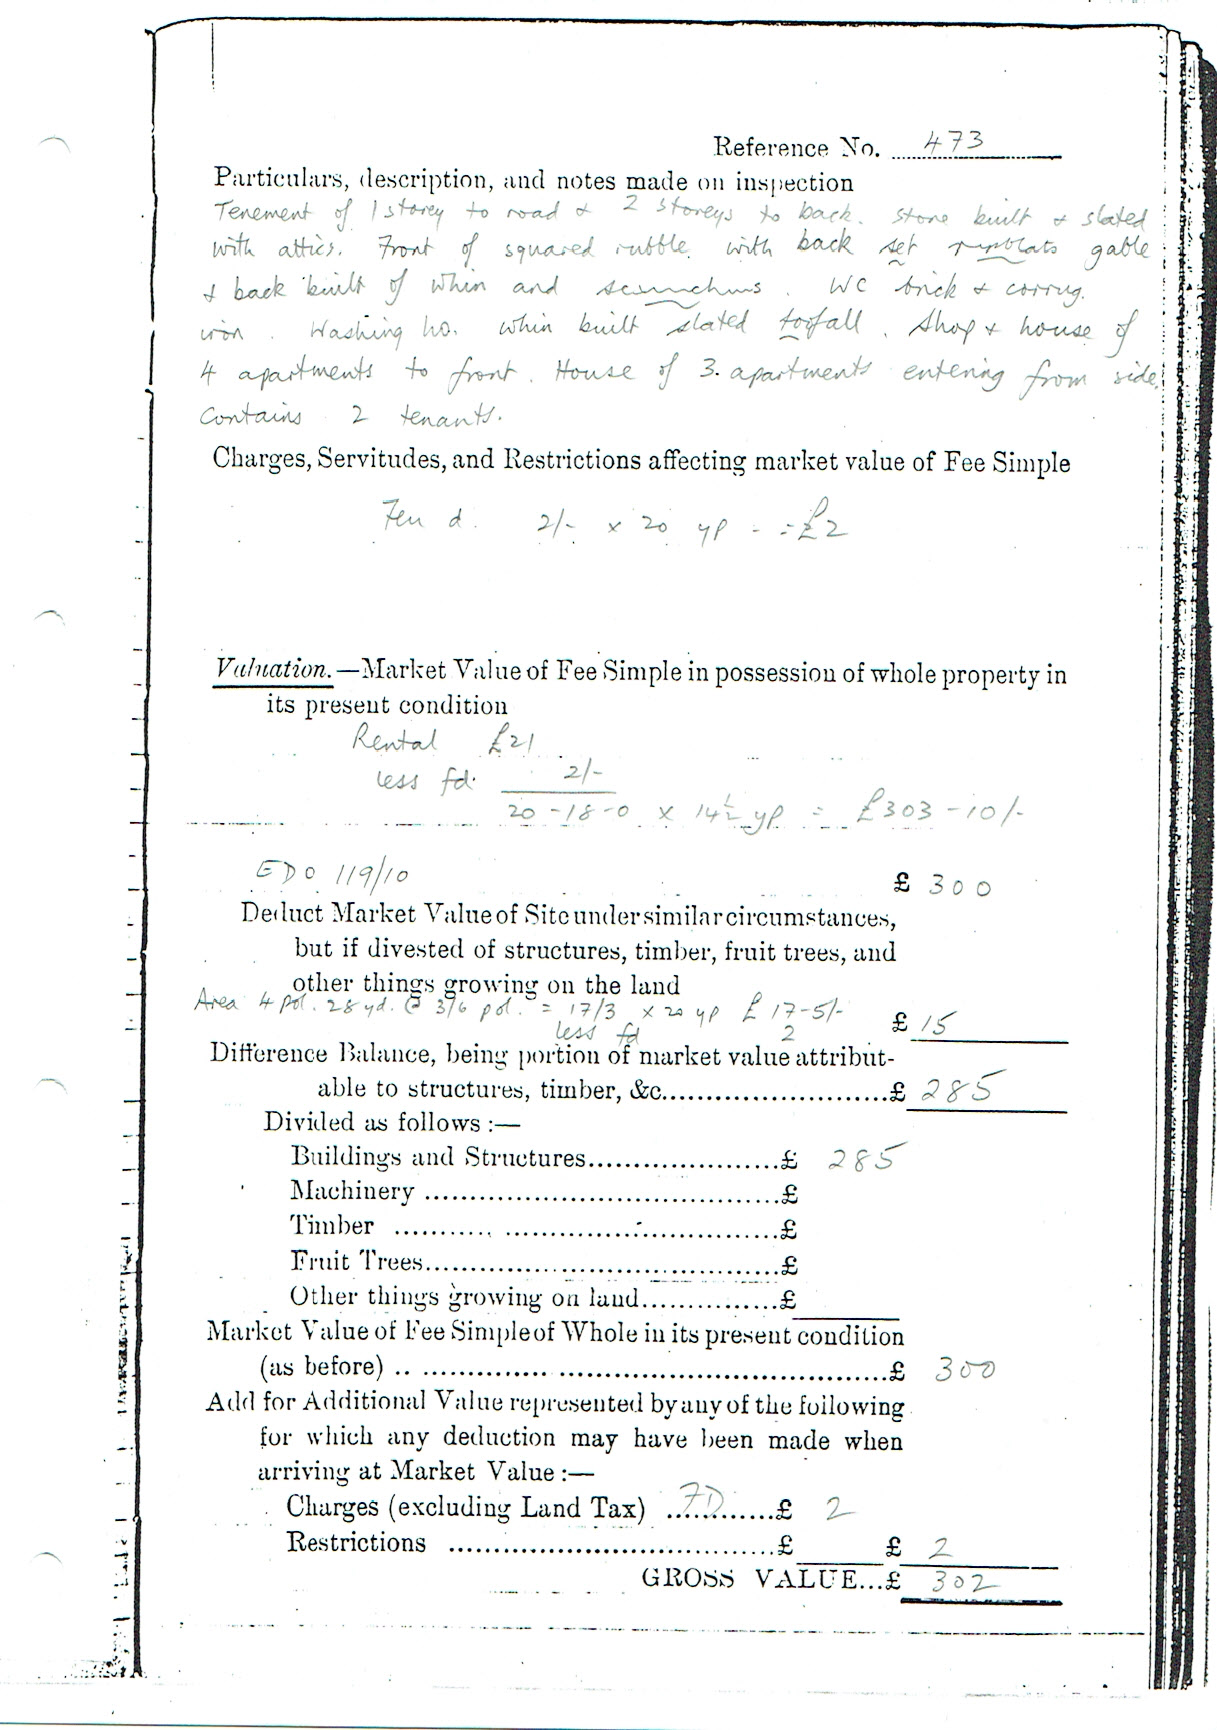 Reference No. 473
Particulars, description, and notes made on inspection
Tenement of 1 storey to road & 2 storeys to back. Stone built & slated
with attics. Front of squared rubble with back set gable
& back built of whin and scunchins. WC brick & corrug.
iron. Washing ho. whin built slated toofall. Shop & house of
4 apartments to front. House of 3 apartments entering from side.
Contains 2 tenants.
Charges, Servitudes, and Restrictions affecting market value of Fee Simple
Feu d. 2/- x 20 yp - = £2
Valuation.—Market Value of Fee Simple in possession of whole property in
its present condition
Rental £21
less fd. 2/-
20-18-0 x 14½ yp = £303-10/-
EDO 119/10 £ 300
Deduct Market Value of Site under similar circumstances,
but if divested of structures, timber, fruit trees, and
other things growing on the land
Area 4 pol. 28 yd. @ 3/6 pol. = 17/3 x 20 yp £ 17-5/-
less fd 2 £ 15
Difference Balance, being portion of market value attribut-
able to structures, timber, &c..........................£ 285
Divided as follows :—
Buildings and Structures......................£ 285
Machinery ........................................£
Timber ............................................£
Fruit Trees.........................................£
Other things growing on land................£
Market Value of Fee Simple of Whole in its present condition
(as before) .. ......................................................£ 300
Add for Additional Value represented by any of the following
for which any deduction may have been made when
arriving at Market Value :—
Charges (excluding Land Tax) FD ............£ 2
Restrictions .....................................£ £ 2
GROSS VALUE...£ 302